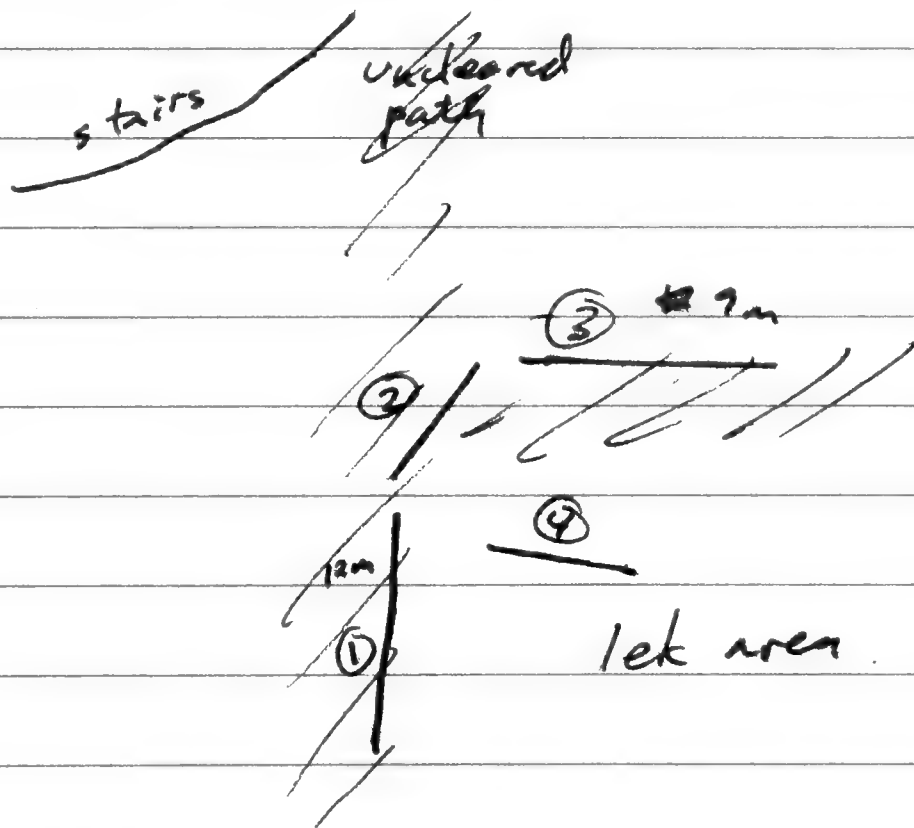 stairs
uncleared
path
③ 9m
②
④
12m
①
lek area